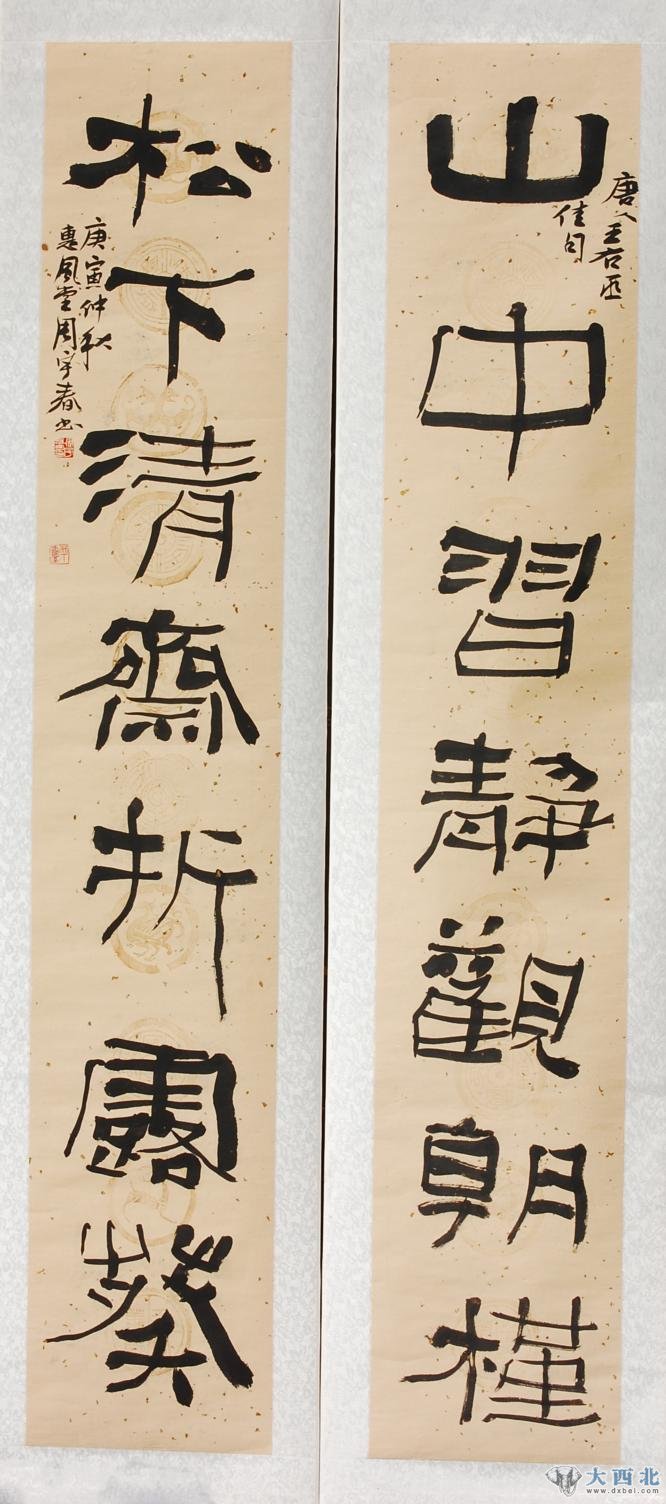 山中習静觀朝槿
唐人王右丞
佳句
松下清齋折露葵
庚寅仲秋
惠風堂周宇春书
大西北
www.dxbei.com